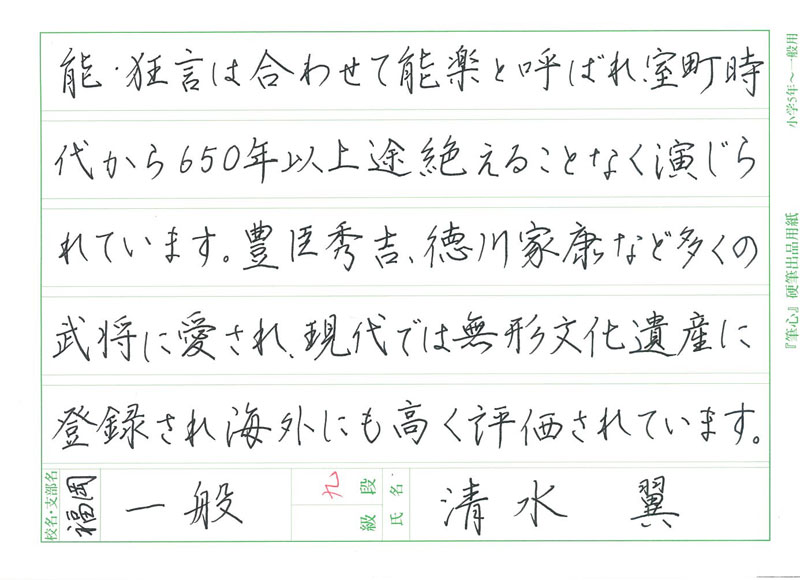 能・狂言は合わせて能楽と呼ばれ、室町時
代から650年以上途絶えることなく演じら
れています。豊臣秀吉、徳川家康など多くの
武将に愛され、現代では無形文化遺産に
登録され海外にも高く評価されています。
校名・支部名 福岡 一般 九 段 級 氏名 清水 翼
小学5年〜一般用
『筆心』硬筆出品用紙